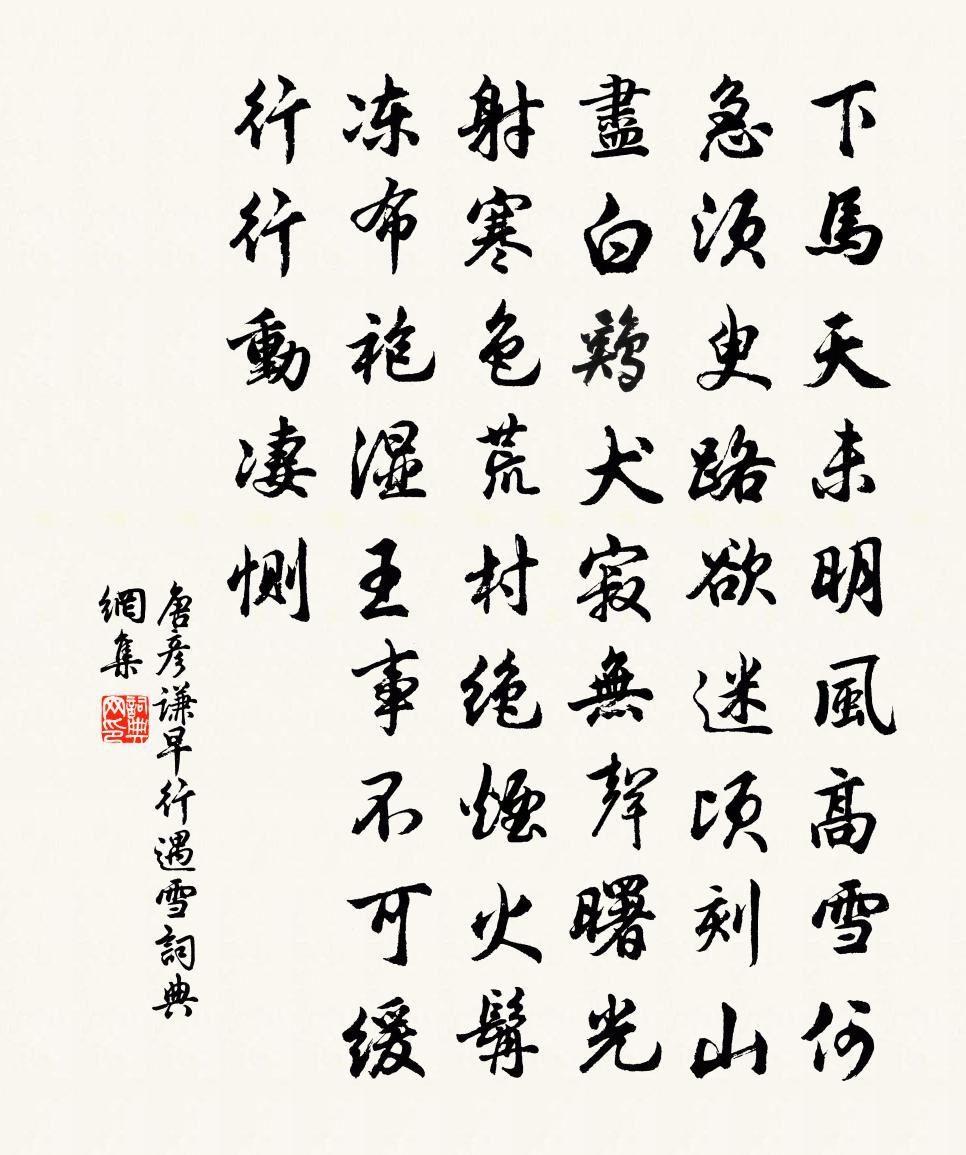 下馬天未明風高雪何
急須臾路欲迷頃刻山
盡白鷄犬寂無聲曙光
射寒色荒村绝煙火髯
冻布袍湿王事不可缓
行行動凄惻
唐彥谦早行遇雪詞典
網集
詞典
网印